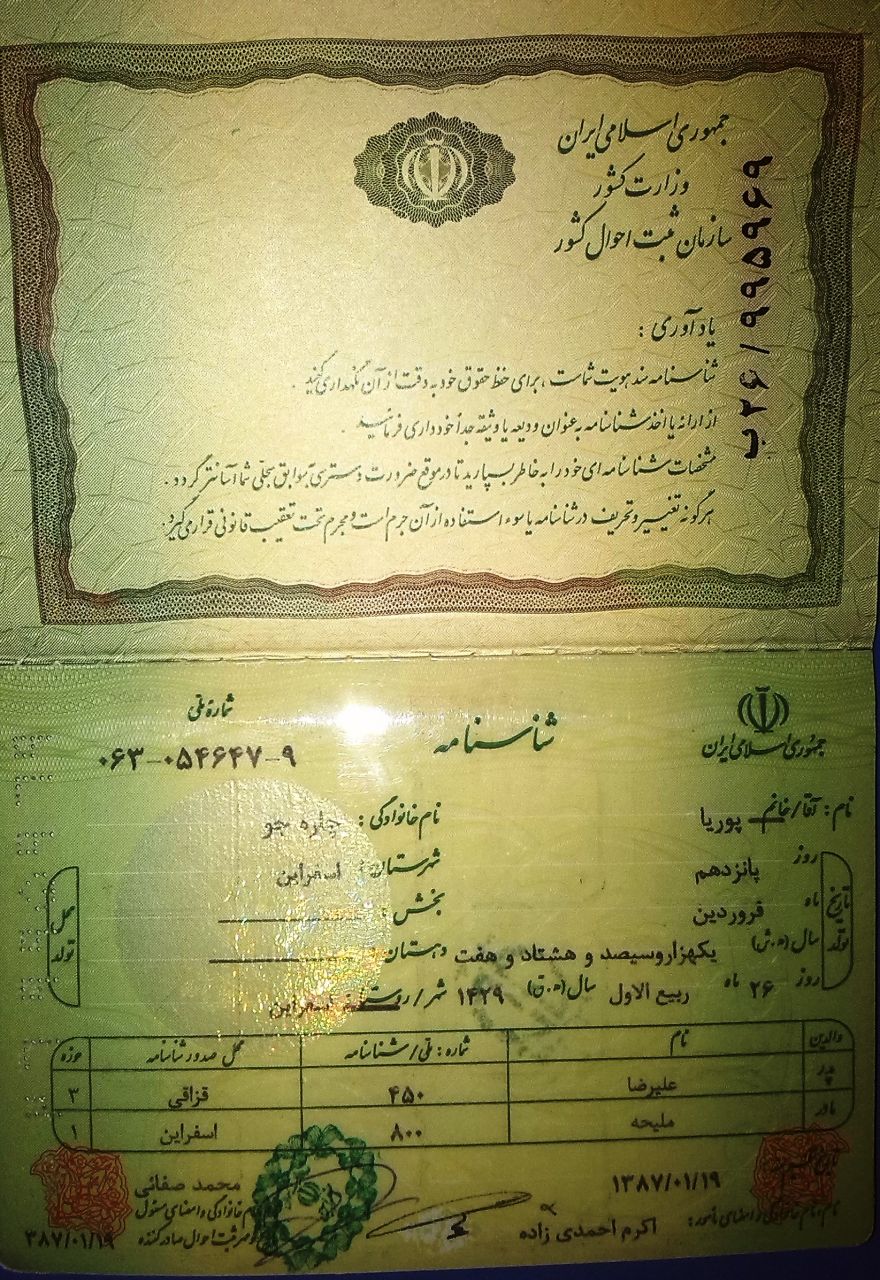 جمهوری اسلامی ایران
وزارت کشور
سازمان ثبت احوال کشور
ب۲۶/۹۹۵۹۶۹
یادآوری :
شناسنامه سند هویت شماست ، برای حفظ حقوق خود به دقت از آن نگهداری کنید .
از ارائه یا اخذ شناسنامه به عنوان ودیعه یا وثیقه جداً خودداری فرمائید .
مشخصات شناسنامه ای خود را به خاطر بسپارید تا در موقع ضرورت دسترسی به سوابق سجلی شما آسانتر گردد .
هرگونه تغییر و تحریف در شناسنامه یا سوء استفاده از آن جرم است و مجرم تحت تعقیب قانونی قرار می گیرد .
جمهوری اسلامی ایران
شناسنامه
شمارهٔ ملی
۰۶۳-۰۵۴۶۴۷-۹
نام : آقا/خانم پوریا نام خانوادگی : چاره جو
تاریخ تولد
روز پانزدهم
ماه فروردین
سال (ه.ش) یکهزاروسیصد و هشتاد و هفت
روز ۲۶ ماه ربیع الاول سال (ه.ق) ۱۴۲۹
محل تولد
شهرستان : اسفراین
بخش :
دهستان :
شهر/روستا اسفراین
والدین نام شماره : ملی/شناسنامه محل صدور شناسنامه حوزه
پدر علیرضا ۴۵۰ قزاقی ۳
مادر ملیحه ۸۰۰ اسفراین ۱
۱۳۸۷/۰۱/۱۹
نام ، نام خانوادگی و امضای مامور : اکرم احمدی زاده
محمد صفائی
نام خانوادگی و امضای مسئول
و مهر ثبت احوال صادر کننده
۳۸۷/۰۱/۱۹